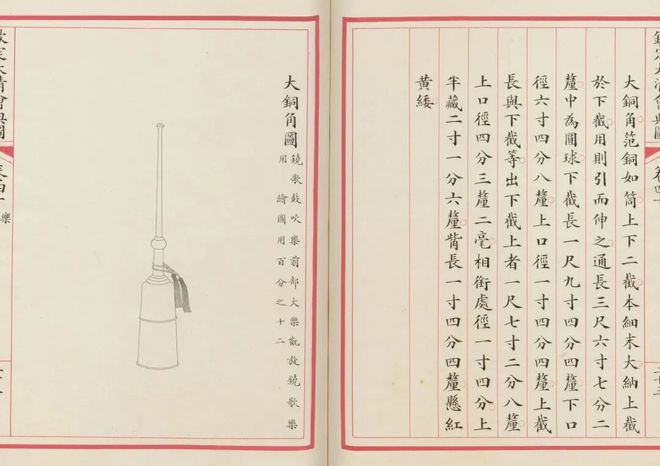 欽定大清會典圖
大銅角范銅如筒上下二截本細末大納上截
於下截用則引而伸之通長三尺六寸七分二
釐中為圓球下截長一尺九寸四分四釐下口
徑六寸四分八釐上口徑一寸四分四釐上截
長與下截等出下截上者一尺七寸二分八釐
上口徑四分三釐二毫相銜處徑一寸四分上
半藏二寸一分六釐觜長一寸四分四釐懸紅
黃緌
大銅角圖
鐃歌鼓吹樂前部大樂凱旋鐃歌樂
用 繪圖用百分之十二
欽定大清會典圖
樂